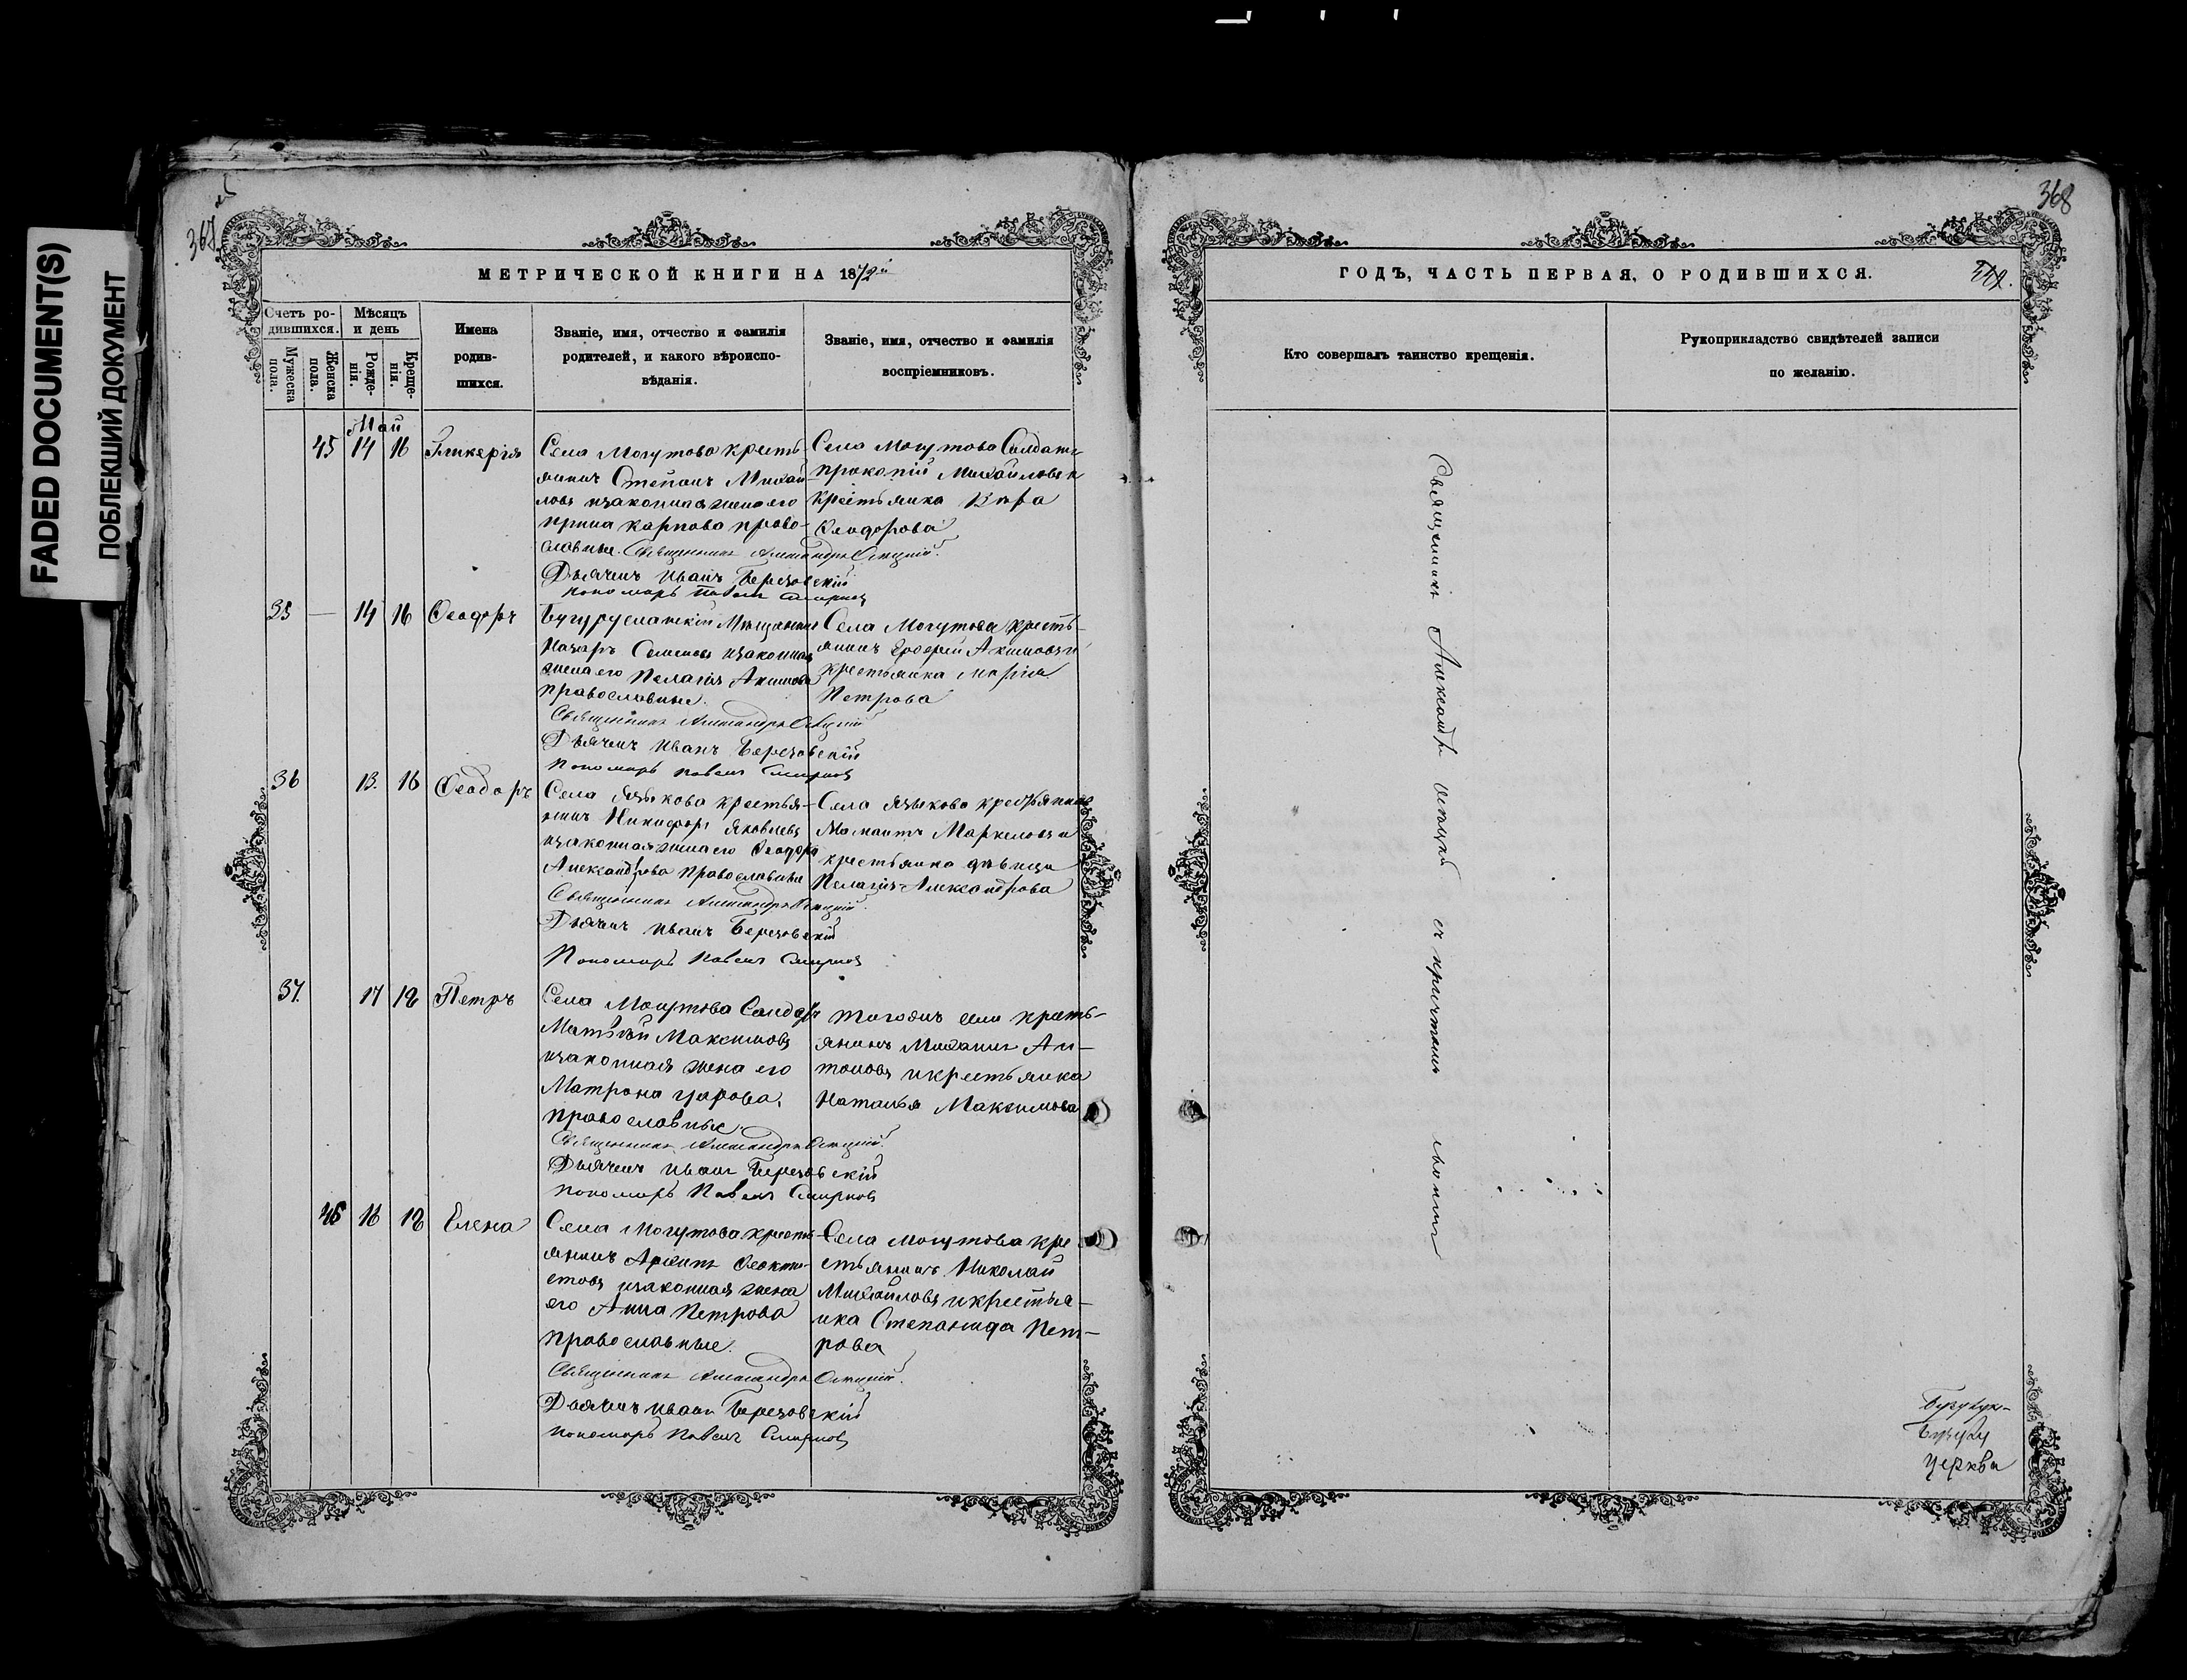 FADED DOCUMENT(S)
ПОБЛЕКШИЙ ДОКУМЕНТ
368
МЕТРИЧЕСКОЙ КНИГИ НА 1872й
Счетъ ро-
дившихся.
Мужеска
пола.
Женска
пола.
Мѣсяцъ
и день
Рожде-
нія.
Креще-
нія.
Имена
родив-
шихся.
Званіе, имя, отчество и фамилія
родителей, и какого вѣроиспо-
вѣданія.
Званіе, имя, отчество и фамилія
воспріемниковъ.
Май
45 14 16 Гликерія
Села Могутова кресть-
янинъ Степанъ Михай-
ловъ изаконная жена его
Ирина Карпова право-
славные.
Священникъ Александръ
Дьячекъ Иванъ Березовскій
Пономарь Павелъ Смирновъ
Села Могутова Солдатъ
Прокопій Михайловъ и
Крестьянка Вара
Феодорова
35 — 14 16 Феодоръ
Бугурусланскій Мещанинъ
Назаръ Семеновъ изаконная
жена его Пелагія Акимова
православные.
Священникъ Александръ
Дьячекъ Иванъ Березовскій
Пономарь Павелъ Смирновъ
Села Могутова кресть-
янинъ Ерофей Акимовъ и
крестьянка Марія
Петрова
36 13. 16 Феодоръ
Села Языкова крестья-
нинъ Никифоръ Яковлевъ
изаконная жена его Феодора
Александрова православные
Священникъ Александръ
Дьячекъ Иванъ Березовскій
Пономарь Павелъ Смирновъ
Села Языкова крестьянинъ
Мамантъ Маркеловъ и
крестьянка дѣвица
Пелагія Александрова
37. 17 18 Петръ
Села Могутова Солдатъ
Матвѣй Максимовъ
изаконная жена его
Матрона
православные.
Священникъ Александръ
Дьячекъ Иванъ Березовскій
Пономарь Павелъ Смирновъ
тогожъ села кресть-
янинъ Михаилъ Ан-
тоновъ икрестьянка
Наталья Максимова
46 16 18 Елена
Села Могутова кресть-
янинъ Архипъ Феокти-
стовъ изаконная жена
его Анна Петрова
православные.
Священникъ Александръ
Дьячекъ Иванъ Березовскій
Пономарь Павелъ Смирновъ
Села Могутова кре-
стьянинъ Николай
Михайловъ икрестья-
нка Степанида Пет-
рова
368
ГОДЪ, ЧАСТЬ ПЕРВАЯ, О РОДИВШИХСЯ.
Кто совершалъ таинство крещенія.
Рукоприкладство свидѣтелей записи
по желанію.
Священникъ Александръ съ причтомъ своимъ
церкви